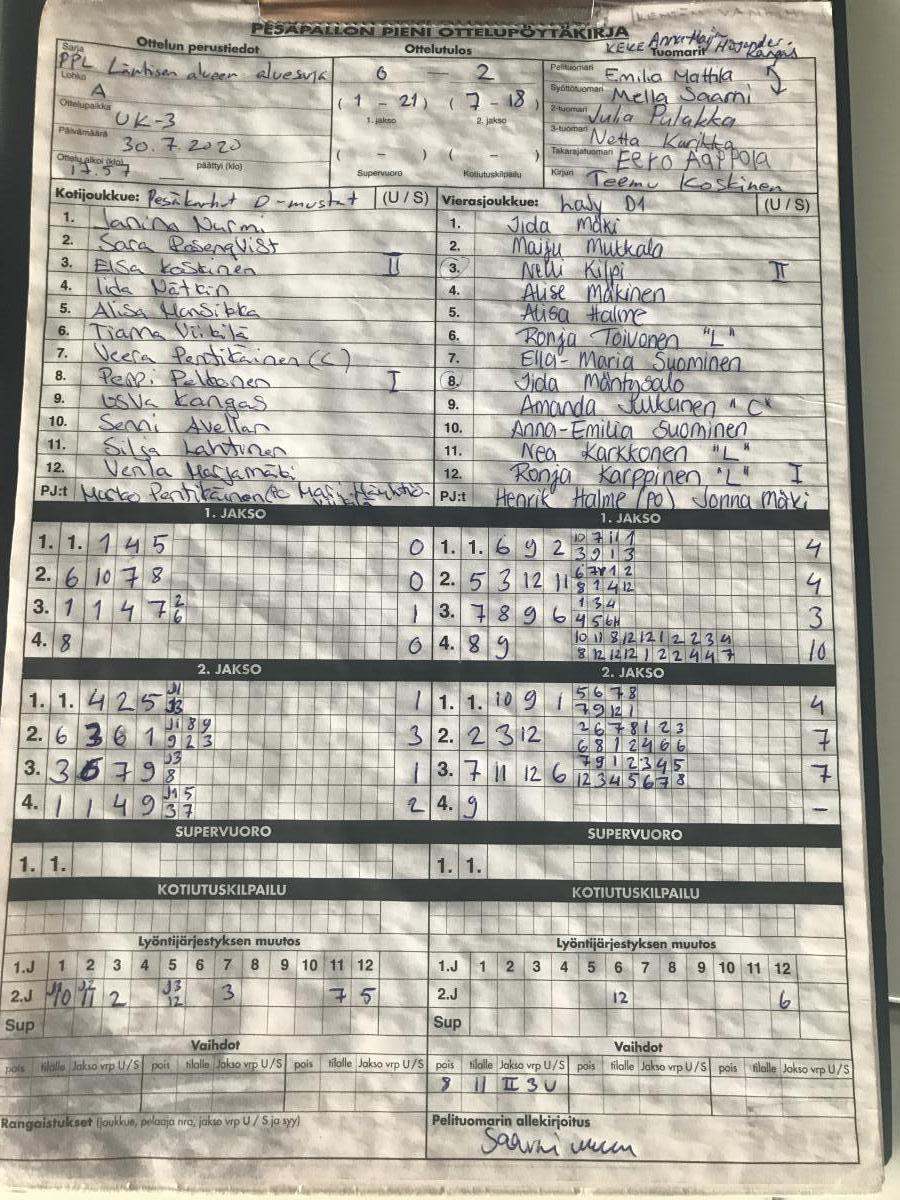 PESÄPALLON PIENI OTTELUPÖYTÄKIRJA
Ottelun perustiedot
Ottelutulos
KEKE Anna-Maj
Tuomarit
Sarja PPL Läntisen alueen aluesarja
6 — 2
Pelituomari Emilia Mattila
Lohko A
( 1 - 21 ) ( 7 - 18 )
Syöttötuomari Mella Saarni
1. jakso 2. jakso
Ottelupaikka UK-3
2-tuomari Julia Pulakka
Päivämäärä 30.7.2020
3-tuomari Netta Karikka
( - ) ( - )
Takarajatuomari Eero Aappola
Ottelu alkoi (klo) 17.57 päättyi (klo)
Supervuoro Kotiutuskilpailu
Kirjuri Teemu Koskinen
Kotijoukkue: Pesäkarhut D-mustat (U / S)
1. Janina Nurmi
2. Sara Rosenqvist
3. Elsa Koskinen II
4. Iida Nätkin
5. Alisa Mansikka
6. Tiama Viikilä
7. Veera Penttikäinen (C)
8. Peppi Peltonen I
9. Usva Kangas
10. Senni Avellan
11. Silja Lahtinen
12. Venla Marjamäki
PJ:t Marko Penttikäinen
Vierasjoukkue: Lady D1 (U / S)
1. Iida Mäki
2. Maiju Mukkala
3. Nelli Kilpi II
4. Alise Mäkinen
5. Alisa Halme
6. Ronja Toivonen "L"
7. Ella-Maria Suominen
8. Iida Mäntysalo
9. Amanda Julkunen "C"
10. Anna-Emilia Suominen
11. Nea Karkkonen "L"
12. Ronja Karppinen "L" I
PJ:t Henrik Halme (PO) Jonna Mäki
1. JAKSO
1. 1. 1 4 5 0
2. 6 10 7 8 0
3. 1 1 4 7 2 6 1
4. 8 0
1. JAKSO
1. 1. 6 9 2 10 7 11 1 3 9 1 3 4
2. 5 3 12 11 6 7 1 2 8 1 4 12 4
3. 7 8 9 6 1 3 4 4 5 6 3
4. 8 9 10 11 8 12 12 1 2 2 3 4 8 12 12 12 1 2 2 4 4 7 10
2. JAKSO
1. 1. 4 2 5 J1 33 1
2. 6 3 6 1 J1 8 9 9 2 3 3
3. 3 6 7 9 J3 8 1
4. 1 1 4 9 J1 5 3 7 2
2. JAKSO
1. 1. 10 9 1 5 6 7 8 7 9 12 1 4
2. 2 3 12 2 6 7 8 1 2 3 6 8 1 2 4 6 6 7
3. 7 11 12 6 7 9 1 2 3 4 5 12 3 4 5 6 7 8 7
4. 9 –
SUPERVUORO
1. 1.
SUPERVUORO
1. 1.
KOTIUTUSKILPAILU
KOTIUTUSKILPAILU
Lyöntijärjestyksen muutos
1.J 1 2 3 4 5 6 7 8 9 10 11 12
2.J 2 J3 12 3 7 5
Sup
Lyöntijärjestyksen muutos
1.J 1 2 3 4 5 6 7 8 9 10 11 12
2.J 12 6
Sup
Vaihdot
pois tilalle Jakso vrp U / S pois tilalle Jakso vrp U / S pois tilalle Jakso vrp U / S
Vaihdot
pois tilalle Jakso vrp U / S pois tilalle Jakso vrp U / S pois tilalle Jakso vrp U / S
8 11 II 3 U
Rangaistukset (joukkue, pelaaja nro, jakso vrp U / S ja syy)
Pelituomarin allekirjoitus